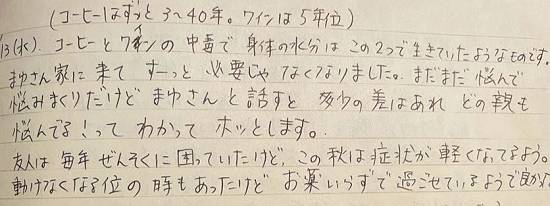 (コーヒーはずっと 3〜40年。ワインは 5年位)
13(水). コーヒーと ワインの 中毒で 身体の水分は この2つで生きていたようなものです。
まゆさん家に 来て すーっと 必要じゃ なくなりました。まだまだ 悩んで
悩みまくりだけど まゆさんと 話すと 多少の差はあれ どの親も
悩んでる!って わかって ホッとします。
友人は 毎年 ぜんそくに 困っていたけど、この秋は症状が 軽くなってるよう。
動けなくなる位の 時もあったけど お薬いらずで 過ごせているようで良かった